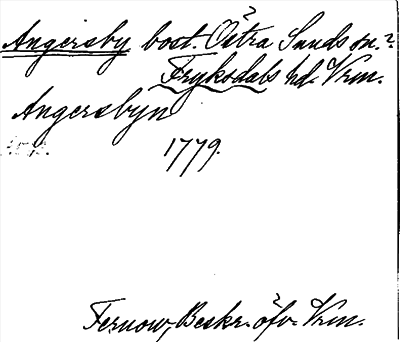 Angersby bost. Östra Sunds sn.?
Fryksdals hd. Vrm.
Angersbyn
1779.
Fernow, Beskr. öfv. Vrm.